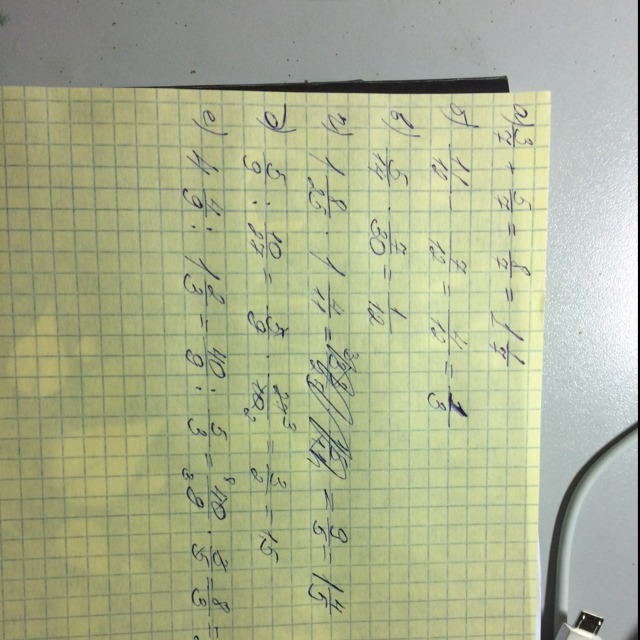 а) 3/7 + 5/7 = 8/7 = 1 1/7
б) 11/12 - 7/12 = 4/12 = 1/3
в) 5/14 · 7/30 = 1/12
г) 1 8/25 · 1 4/11 = = 9/5 = 1 4/5
д) 5/9 : 10/27 = 5/9 · 27/10 = 3/2 = 1,5
е) 4 4/9 : 1 2/3 = 40/9 : 5/3 = 40/9 · 3/5 = 8/3 =